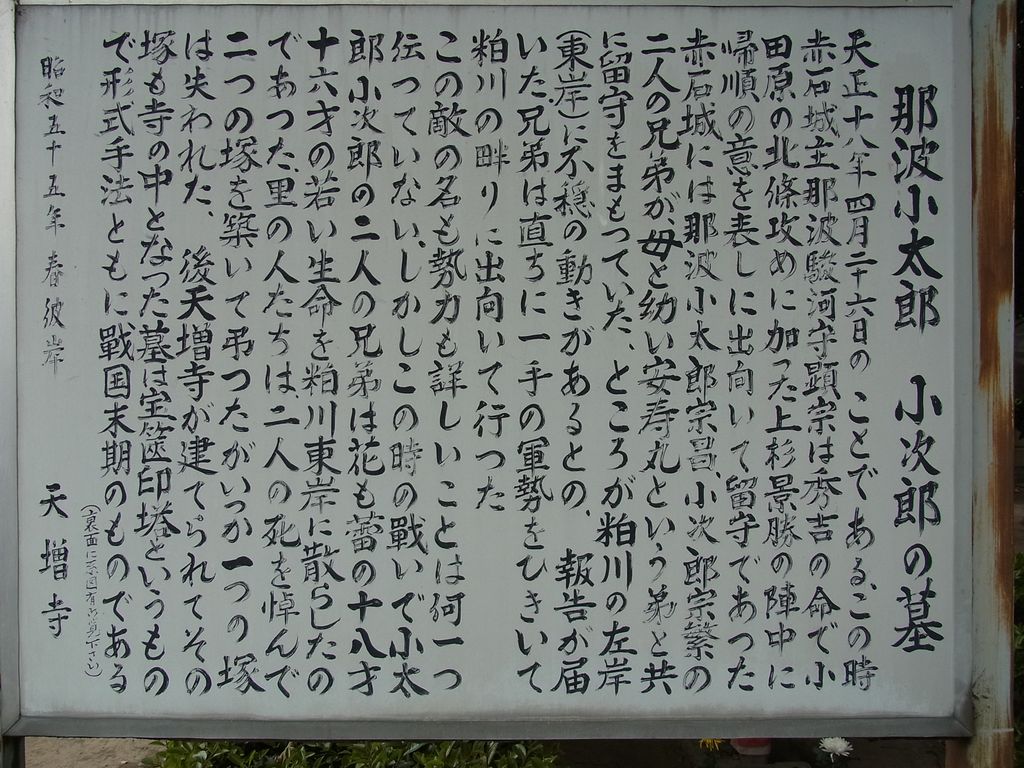 那波小太郎　小次郎の墓
天正十八年四月二十六日の　ことである、この時
赤石城主那波駿河守顕宗は秀吉の命で小
田原の北條攻めに加った上杉景勝の陣中に
帰順の意を表しに出向いて留守であった
赤石城には那波小太郎宗昌、小次郎宗繁の
二人の兄弟が、母と幼い安寿丸という弟と共
に留守をまもっていた、ところが粕川の左岸
(東岸)に不穏の動きがあるとの、　報告が届
いた兄弟は直ちに一手の軍勢をひきいて
粕川の畔りに出向いて行った
この敵の名も勢力も詳しいことは何一つ
伝っていない、しかしこの時の戰いで小太
郎小次郎の二人の兄弟は花も蕾の十八才
十六才の若い生命を粕川東岸に散らしたの
であった、里の人たちは、二人の死を悼んで
二つの塚を築いて弔ったがいつか一つの塚
は失われた、　後天増寺が建てられてその
塚も寺の中となった墓は宝篋印塔というもの
で形式手法ともに戰国末期のものである
昭和五十五年　春彼岸　天増寺